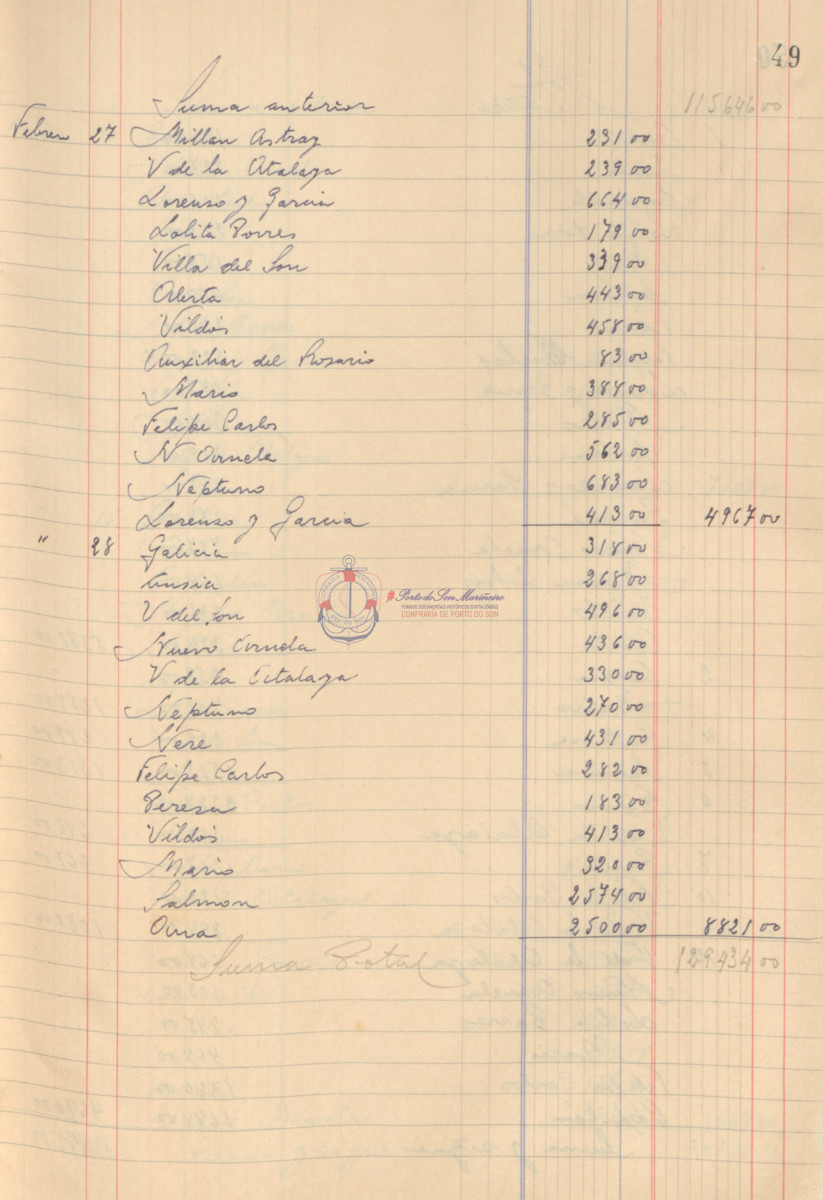 49
Suma anterior 115646 00
Febrero 27 Millan Astray 231 00
V de la Atalaya 239 00
Lorenso y Garcia 664 00
Lolita Torres 179 00
Villa del Son 339 00
Alerta 443 00
Vildós 458 00
Auxiliar del Rosario 83 00
Mario 388 00
Felipe Carlos 285 00
N Ornela 562 00
Neptuno 683 00
Lorenso y Garcia 413 00 4967 00
" 28 Galicia 318 00
Ansia 268 00
V del Son 496 00
Nuevo Ornela 436 00
V de la Atalaya 330 00
Neptuno 270 00
Nere 431 00
Felipe Carlos 282 00
Teresa 183 00
Vildós 413 00
Mario 320 00
Salmon 2574 00
Oura 2500 00 8821 00
Suma Total 129434 00
Porto do Son Mariñeiro
FONDOS DOCUMENTAIS HISTÓRICOS DIXITALIZADOS
CONFRARÍA DE PORTO DO SON